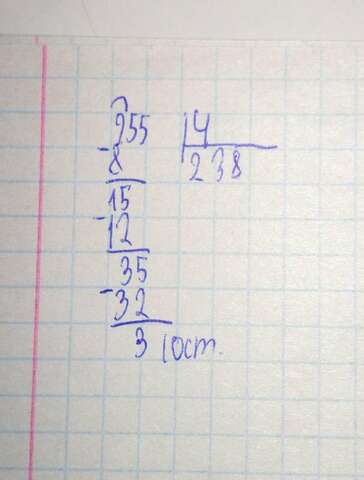 955 4
- 8 238
15
- 12
35
- 32
3 (ост.